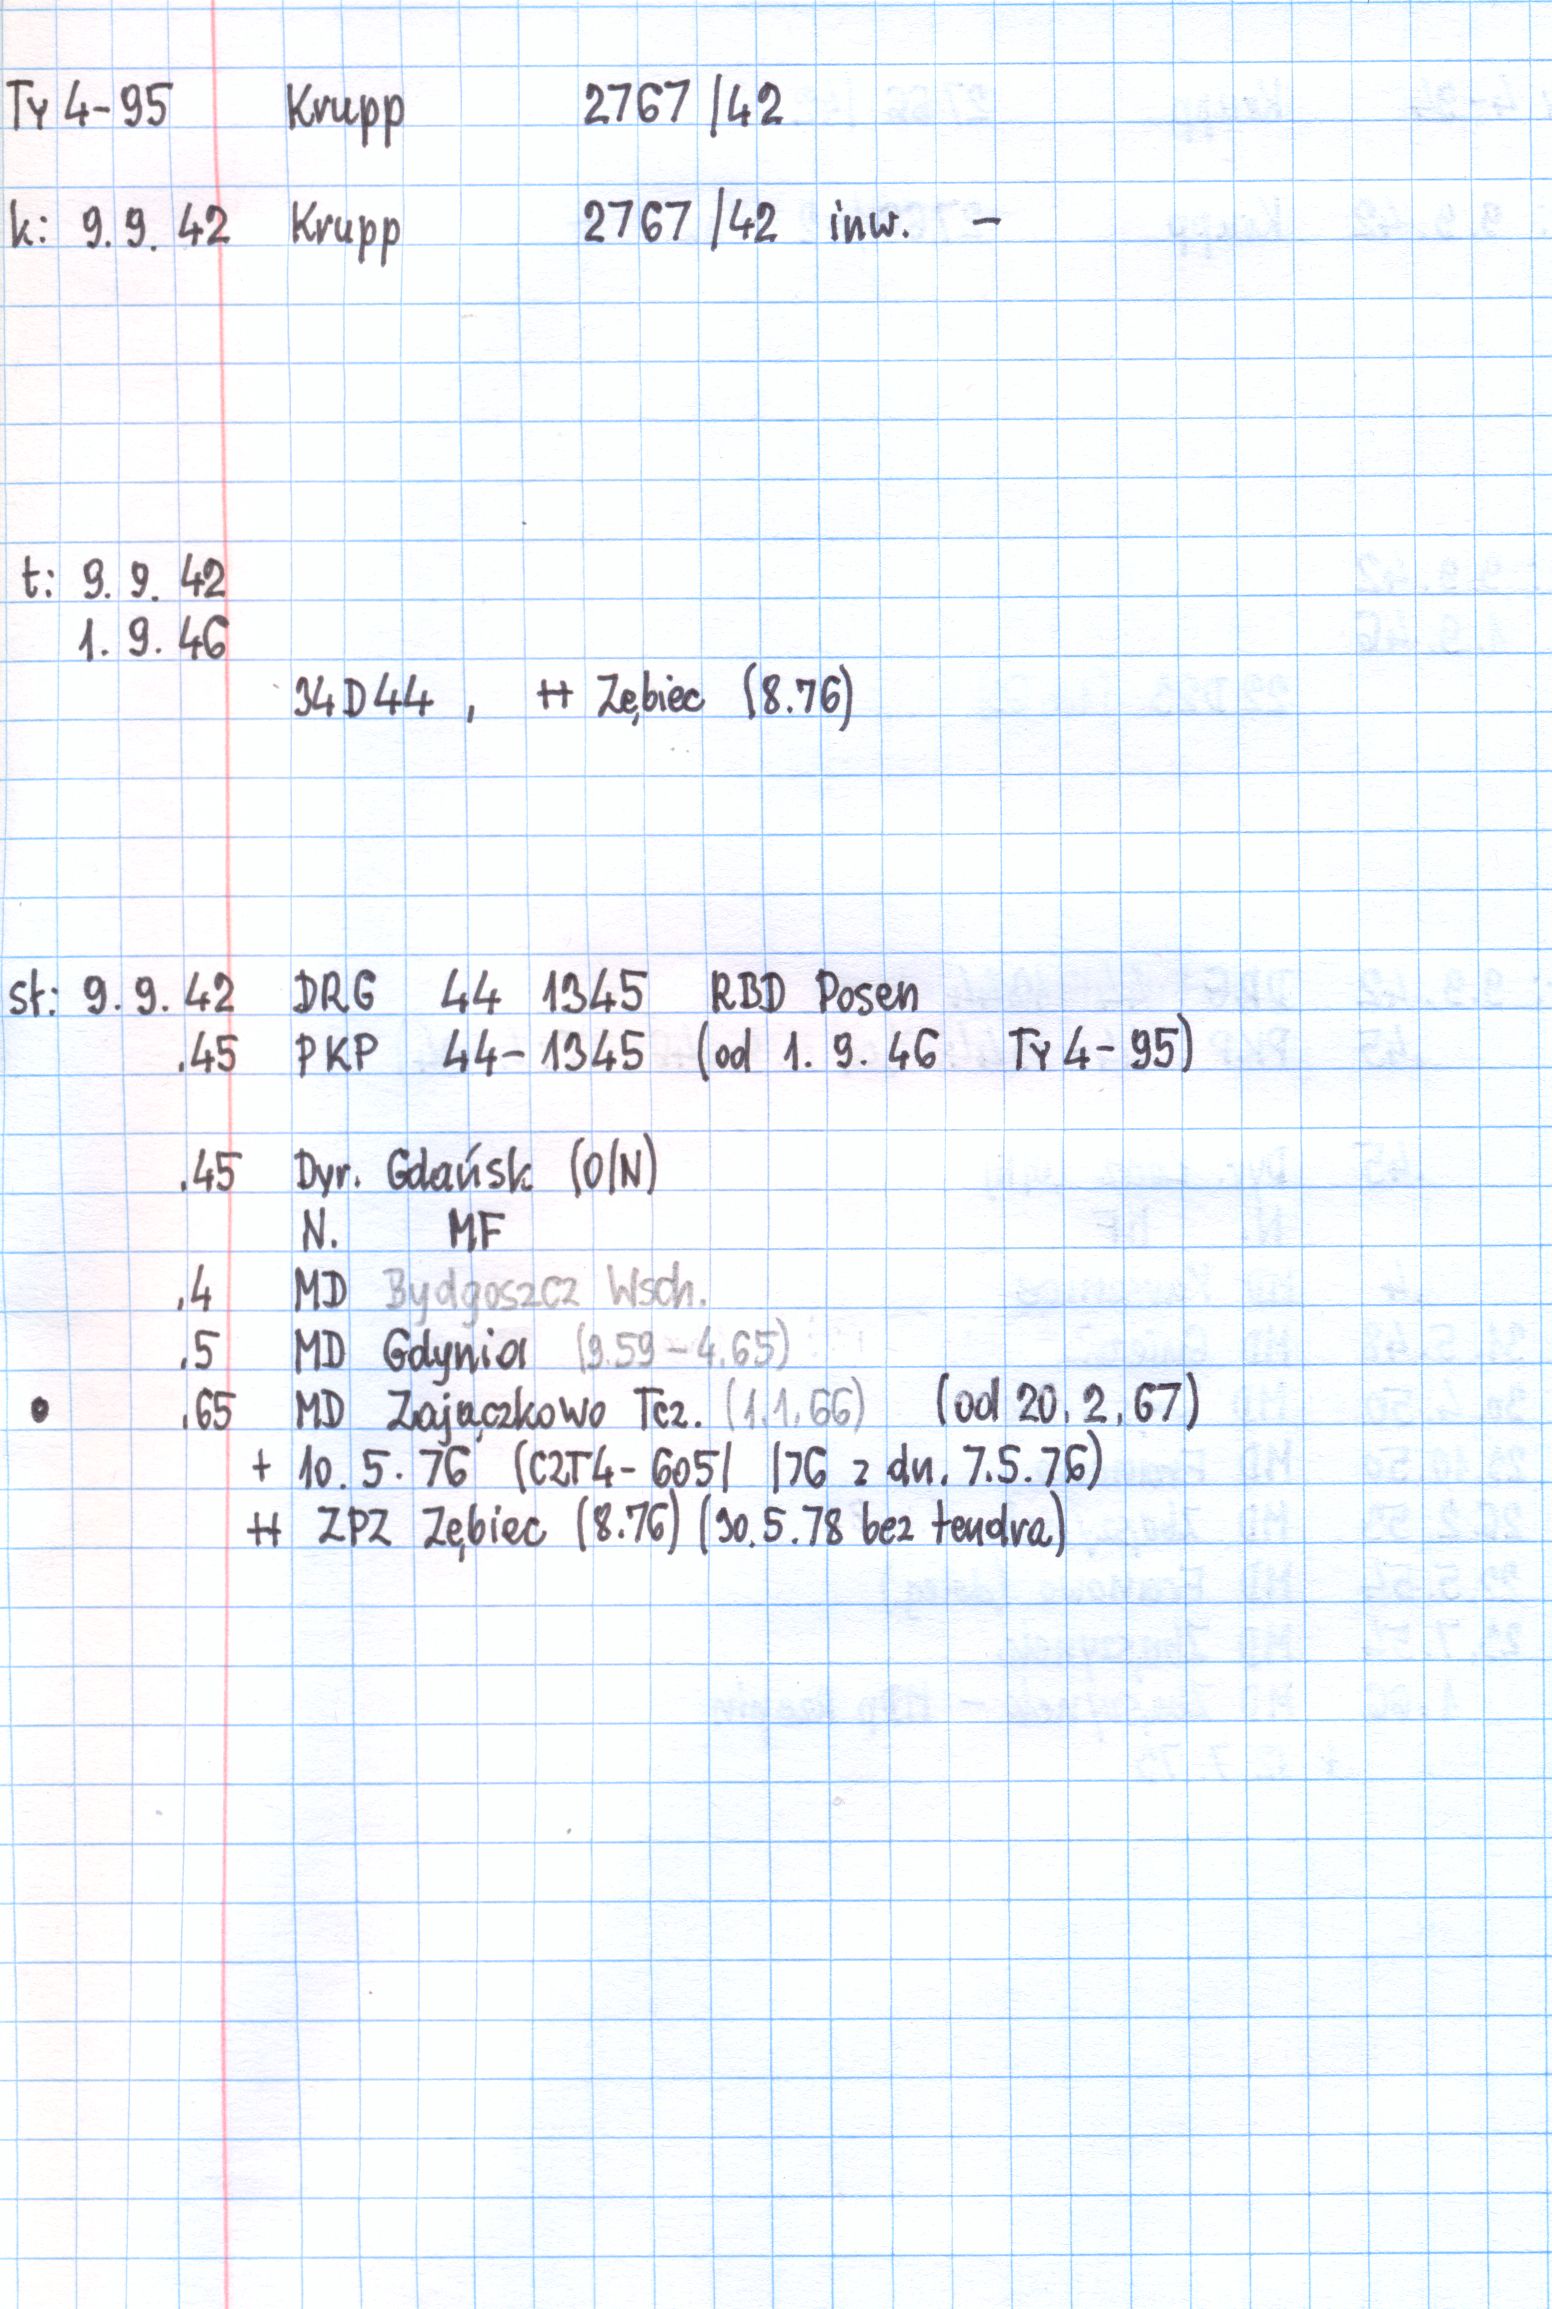 Ty 4-95 Krupp 2767/42
k: 9.9.42 Krupp 2767/42 inw. -
t: 9.9.42
1.9.46
34D44, ++ Zębiec (8.76)
st: 9.9.42 DRG 44 1345 RBD Posen
.45 PKP 44-1345 (od 1.9.46 Ty 4-95)
.45 Dyr. Gdańsk (O/N)
N. MF
.4 MD Bydgoszcz Wsch.
.5 MD Gdynia (9.59-4.65)
• .65 MD Zajączkowo Tcz. (1.1.66) (od 20.2.67)
+ 10.5.76 (C2T4-605/ /76 z dn. 7.5.76)
++ ZPZ Zębiec (8.76) (30.5.78 bez tendra)